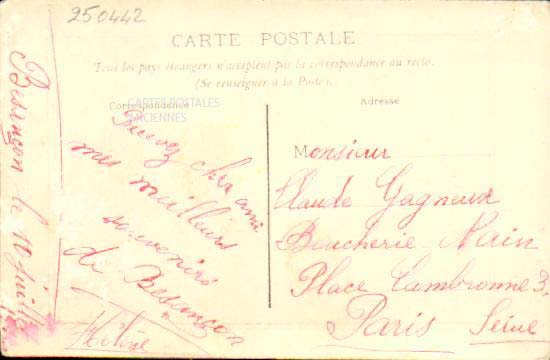 250442
CARTE POSTALE
Tous les pays étrangers n'acceptent pas la correspondance au recto.
(Se renseigner à la Poste).
Correspondance
Adresse
CARTES POSTALES
ANCIENNES
Besançon le 10 Juillet
Recevez cher ami
mes meilleurs
souvenirs
de Besançon
Monsieur
Claude Gagneux
Boucherie Nain
Place Cambronne 3,
Paris Seine